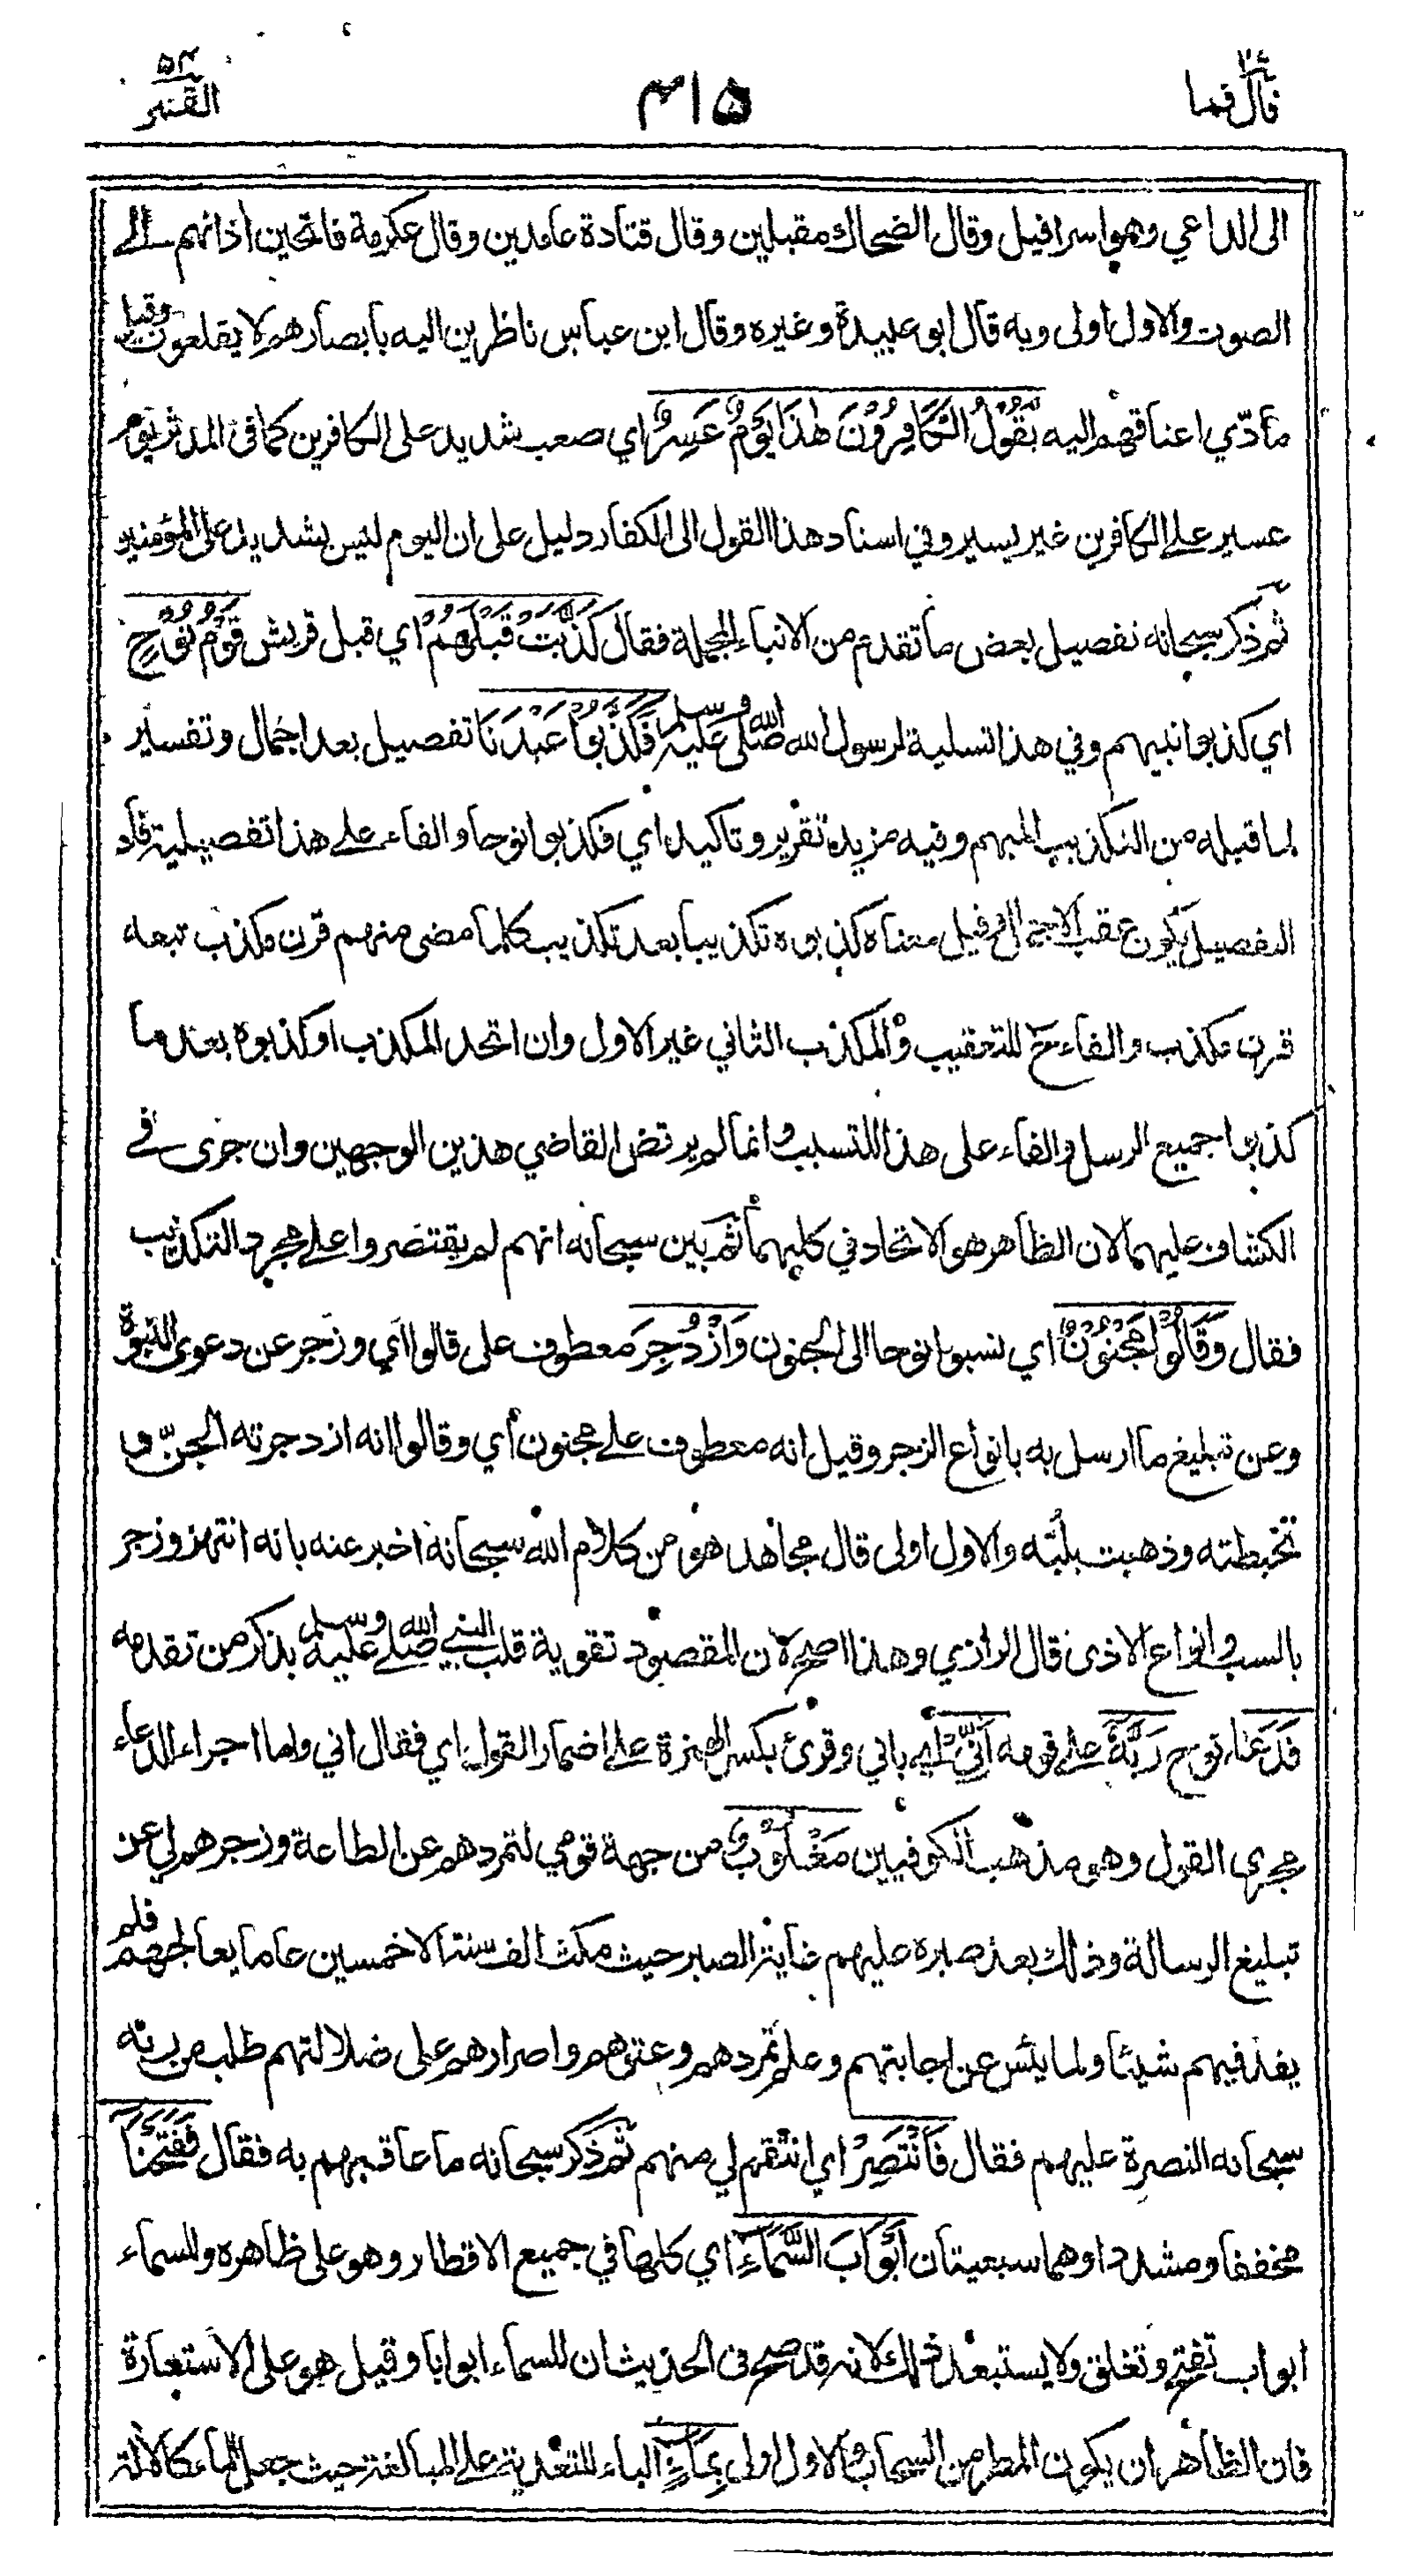 قال فما ٢٧
٣١٥
القمر ٥٤
الى الداعي وهو اسرافيل وقال الضحاك مقبلين وقال قتادة عامدين وقال عكرمة فاتحين اذانهم الى
الصوت والاول اولى وبه قال ابو عبيدة وغيره وقال ابن عباس ناظرين اليه بابصارهم لا يقلعون وقيل
مادّي اعناقهم اليه يَقُوْلُ الْكَافِرُوْنَ هٰذَا يَوْمٌ عَسِرٌ اي صعب شديد على الكافرين كما في المدثر يوم
عسير على الكافرين غير يسير وفي اسناد هذا القول الى الكفار دليل على ان اليوم ليس بشديد على المؤمنين
ثم ذكر سبحانه تفصيل بعض ما تقدم من الانباء المجملة فقال كَذَّبَتْ قَبْلَهُمْ اي قبل قريش قَوْمُ نُوْحٍ
اي كذبوا نبيهم وفي هذا تسلية لرسول الله صلى الله عليه وسلم فَكَذَّبُوْا عَبْدَنَا تفصيل بعد اجمال وتفسير
لما قبله من التكذيب المبهم وفيه مزيد تقرير وتاكيد اي فكذبوا نوحا والفاء على هذا تفصيلية فان
التفصيل يكون عقب الاجمال وقيل معناه كذبوه تكذيبا بعد تكذيب كلما مضى منهم قرن مكذب تبعه
قرن مكذب والفاء ح للتعقيب والمكذب الثاني غير الاول وان اتحد المكذب او كذبوه بعد ما
كذبوا جميع الرسل والفاء على هذا للتسبب وانما لم يرتض القاضي هذين الوجهين وان جرى في
الكشاف عليهما لان الظاهر هو الاتحاد في كليهما ثم بين سبحانه انهم لم يقتصروا على مجرد التكذيب
فقال وَقَالُوْا مَجْنُوْنٌ اي نسبوا نوحا الى الجنون وَازْدُجِرَ معطوف على قالوا اي وزجر عن دعوى النبوة
وعن تبليغ ما ارسل به بانواع الزجر وقيل انه معطوف على مجنون اي وقالوا انه ازدجرته الجنّ و
تخبطته وذهبت بلبّه والاول اولى قال مجاهد هو من كلام الله سبحانه اخبر عنه بانه انتهر وزجر
بالسب وانواع الاذى قال الرازي وهذا اصح لان المقصود تقوية قلب النبي صلى الله عليه وسلم بذكر من تقدمه
فَدَعَا نوح رَبَّهٗ على قومه اَنِّيْ اي باني وقرئ بكسر الهمزة على اضمار القول اي فقال اني واما اجراء الدعاء
مجرى القول وهو مذهب الكوفيين مَغْلُوْبٌ من جهة قومي لتمردهم عن الطاعة وزجرهم لي عن
تبليغ الرسالة وذلك بعد صبره عليهم غاية الصبر حيث مكث الف سنة الا خمسين عاما يعالجهم فلم
يفد فيهم شيئا ولما يئس عن اجابتهم وعلم تمردهم وعتوهم واصرارهم على ضلالتهم طلب من ربه
سبحانه النصرة عليهم فقال فَانْتَصِرْ اي انتقم لي منهم ثم ذكر سبحانه ما عاقبهم به فقال فَفَتَحْنَا
مخففا ومشددا وهما سبعيتان اَبْوَابَ السَّمَآءِ اي كلها في جميع الاقطار وهو على ظاهره وللسماء
ابواب تفتح وتغلق ولا يستبعد ذلك لانه قد صح في الحديث ان للسماء ابوابا وقيل هو على الاستعارة
فان الظاهر ان يكون المطر من السحاب والاول اولى بِمَآءٍ الباء للتعدية على المبالغة حيث جعل الماء كالالة